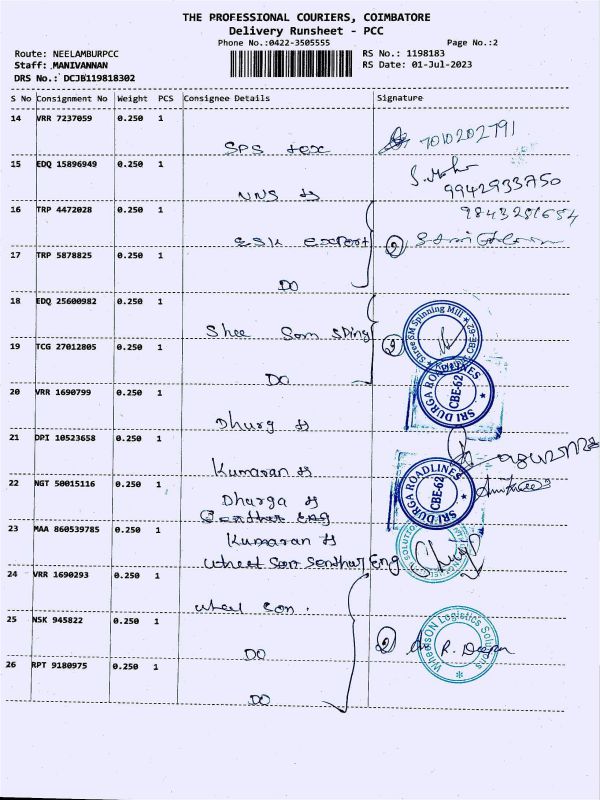 THE PROFESSIONAL COURIERS, COIMBATORE
Delivery Runsheet - PCC
Phone No.:0422-3505555 Page No.:2
Route: NEELAMBURPCC RS No.: 1198183
Staff: MANIVANNAN RS Date: 01-Jul-2023
DRS No.: DCJB119818302
S No Consignment No Weight PCS Consignee Details Signature
14 VRR 7237059 0.250 1
SPS tex 7010202791
15 EDQ 15896949 0.250 1
NNS 9942933750
16 TRP 4472028 0.250 1
ESK Export 2
17 TRP 5878825 0.250 1
DO
18 EDQ 25600982 0.250 1
Shee Som Sping Shree SM Spinning Mill CBE-62
19 TCG 27012805 0.250 1 2
DO
20 VRR 1690799 0.250 1 SRI DURGA ROADLINES CBE-62
Dhurg
21 DPI 10523658 0.250 1
Kumaran
22 NGT 50015116 0.250 1 SRI DURGA ROADLINES CBE-62
Dhurga
Senthur Eng
23 MAA 860539785 0.250 1
Kumaran
Wheel Son Senthur Eng
24 VRR 1690293 0.250 1
Wheel Son.
25 NSK 945822 0.250 1 WheelsON Logistics Solutions
DO 2 R. Deepa
26 RPT 9180975 0.250 1
DO